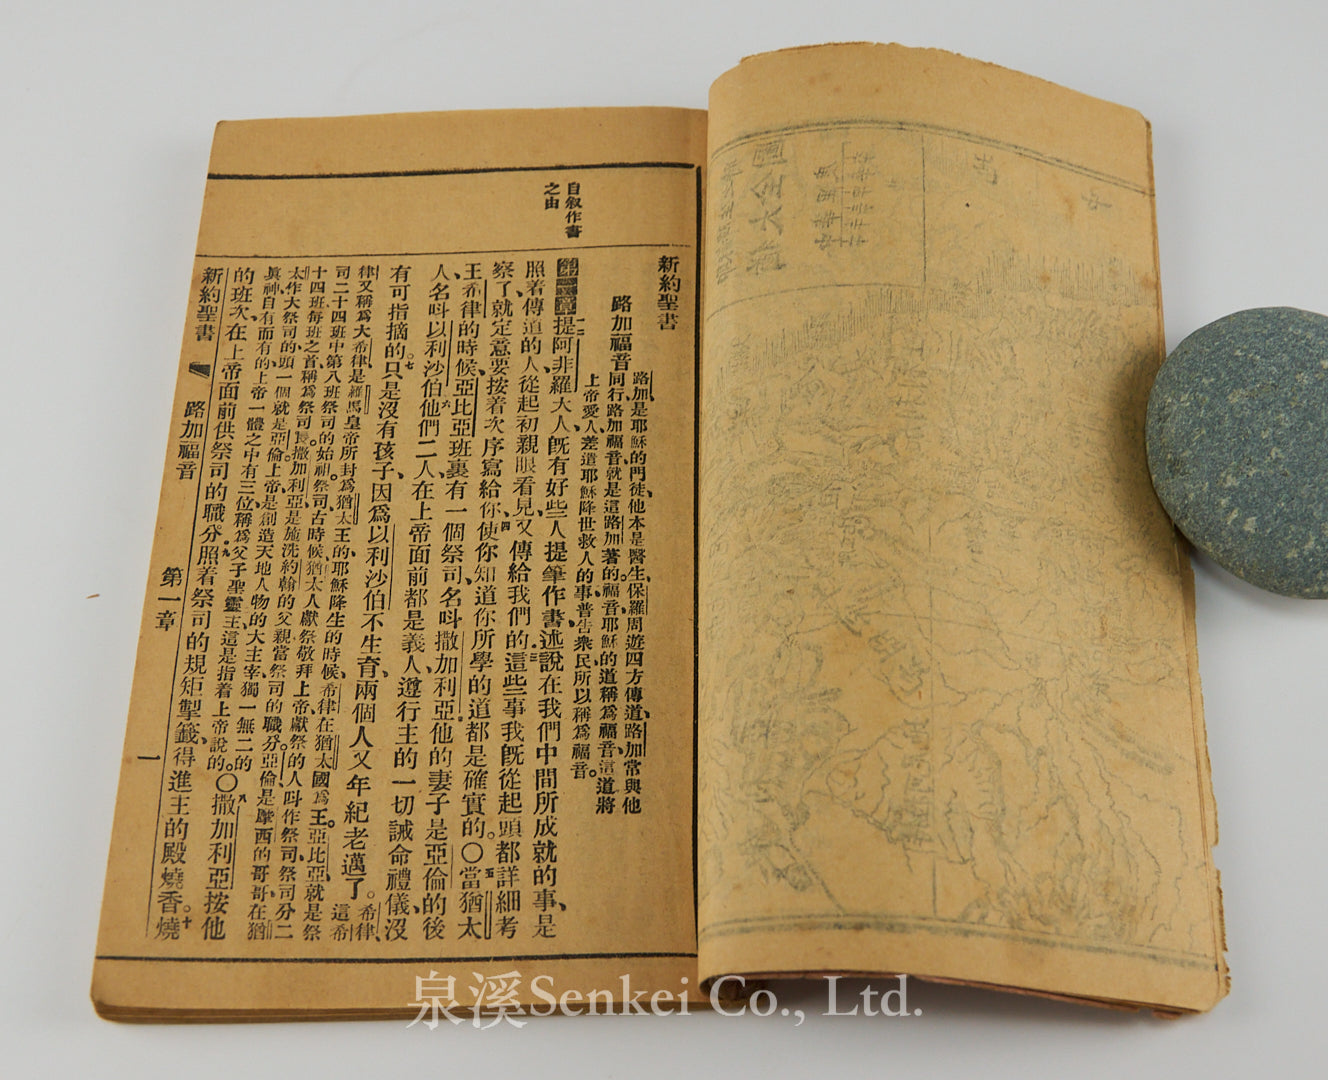 自叙作書
之由
新約聖書
路加福音
路加是耶穌的門徒他本是醫生、保羅周遊四方傳道、路加常與他
同行、路加福音、就是這路加著的、福音、耶穌的道稱爲福音、這道將
上帝愛人、差遣耶穌降世救人的事、普告衆民、所以稱爲福音。
第一章提阿非羅大人、既有好些人提筆作書、述說在我們中間所成就的事、是
照着傳道的人從起初親眼看見、又傳給我們的、這些事我既從起頭都詳細考
察了、就定意要按着次序寫給你、使你知道你所學的道都是確實的。〇當猶太
王希律的時候、亞比亞班裏有一個祭司、名呌撒加利亞、他的妻子是亞倫的後
人、名呌以利沙伯、他們二人在上帝面前都是義人、遵行主的一切誡命禮儀、沒
有可指摘的。只是沒有孩子、因爲以利沙伯不生育、兩個人又年紀老邁了。希律、這希
律又稱爲大希律、是羅馬皇帝所封爲猶太王的、耶穌降生的時候、希律在猶太國爲王。亞比亞、就是祭
司二十四班中第八班祭司的始祖、祭司、古時候、猶太人獻祭敬拜上帝、獻祭的人呌作祭司、祭司分二
十四班、每班之首、稱爲祭司長、撒加利亞、是施洗約翰的父親、當祭司的職分。亞倫、是摩西的哥哥、在猶
太作大祭司的頭一個、就是亞倫、上帝、是創造天地人物的大主宰、獨一無二的
眞神、自有而有的、上帝一體之中有三位、稱爲父子聖靈、主、這是指着上帝說的。〇撒加利亞按他
的班次、在上帝面前供祭司的職分、照着祭司的規矩掣籤、得進主的殿燒香。燒
新約聖書 路加福音 第一章 一
泉溪Senkei Co., Ltd.